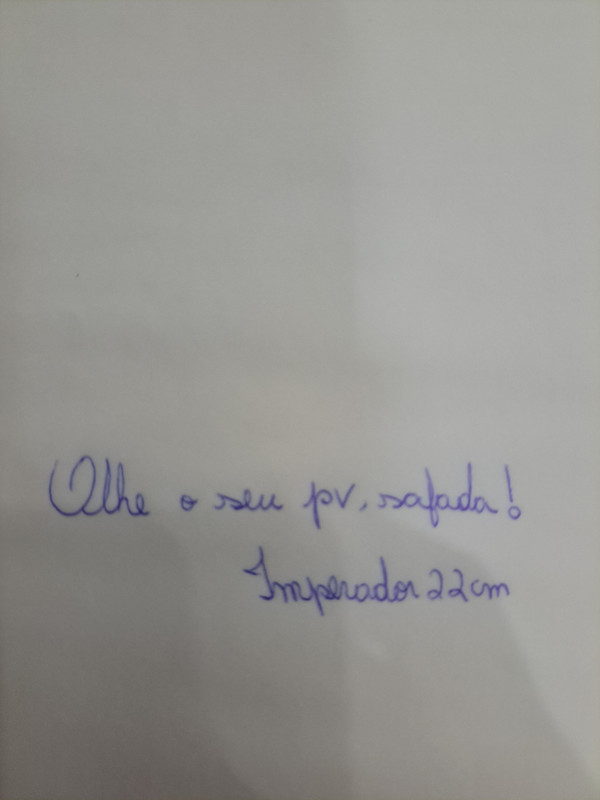 Olhe o seu pv, safada!
Imperador 22cm